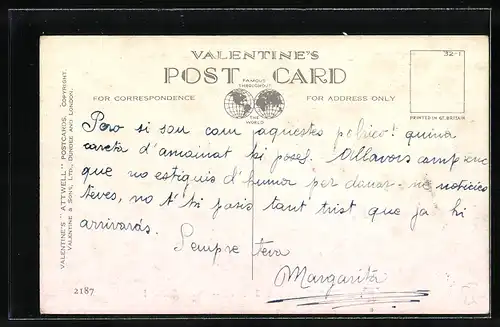 VALENTINE'S
32-1
POST CARD
FAMOUS THROUGHOUT
THE WORLD
FOR CORRESPONDENCE
FOR ADDRESS ONLY
PRINTED IN GT. BRITAIN
VALENTINE'S "ATTWELL" POSTCARDS. COPYRIGHT.
VALENTINE & SONS, LTD., DUNDEE AND LONDON.
Pero si són com aquestes pelrico! quina
careta d'amoinat hi poses. Allavors comprenc
que no estiguis d'humor per donar-me noticies
teves, no t'hi posis tant trist que ja hi
arrivaràs.
Sempre teva
Margarita
2187